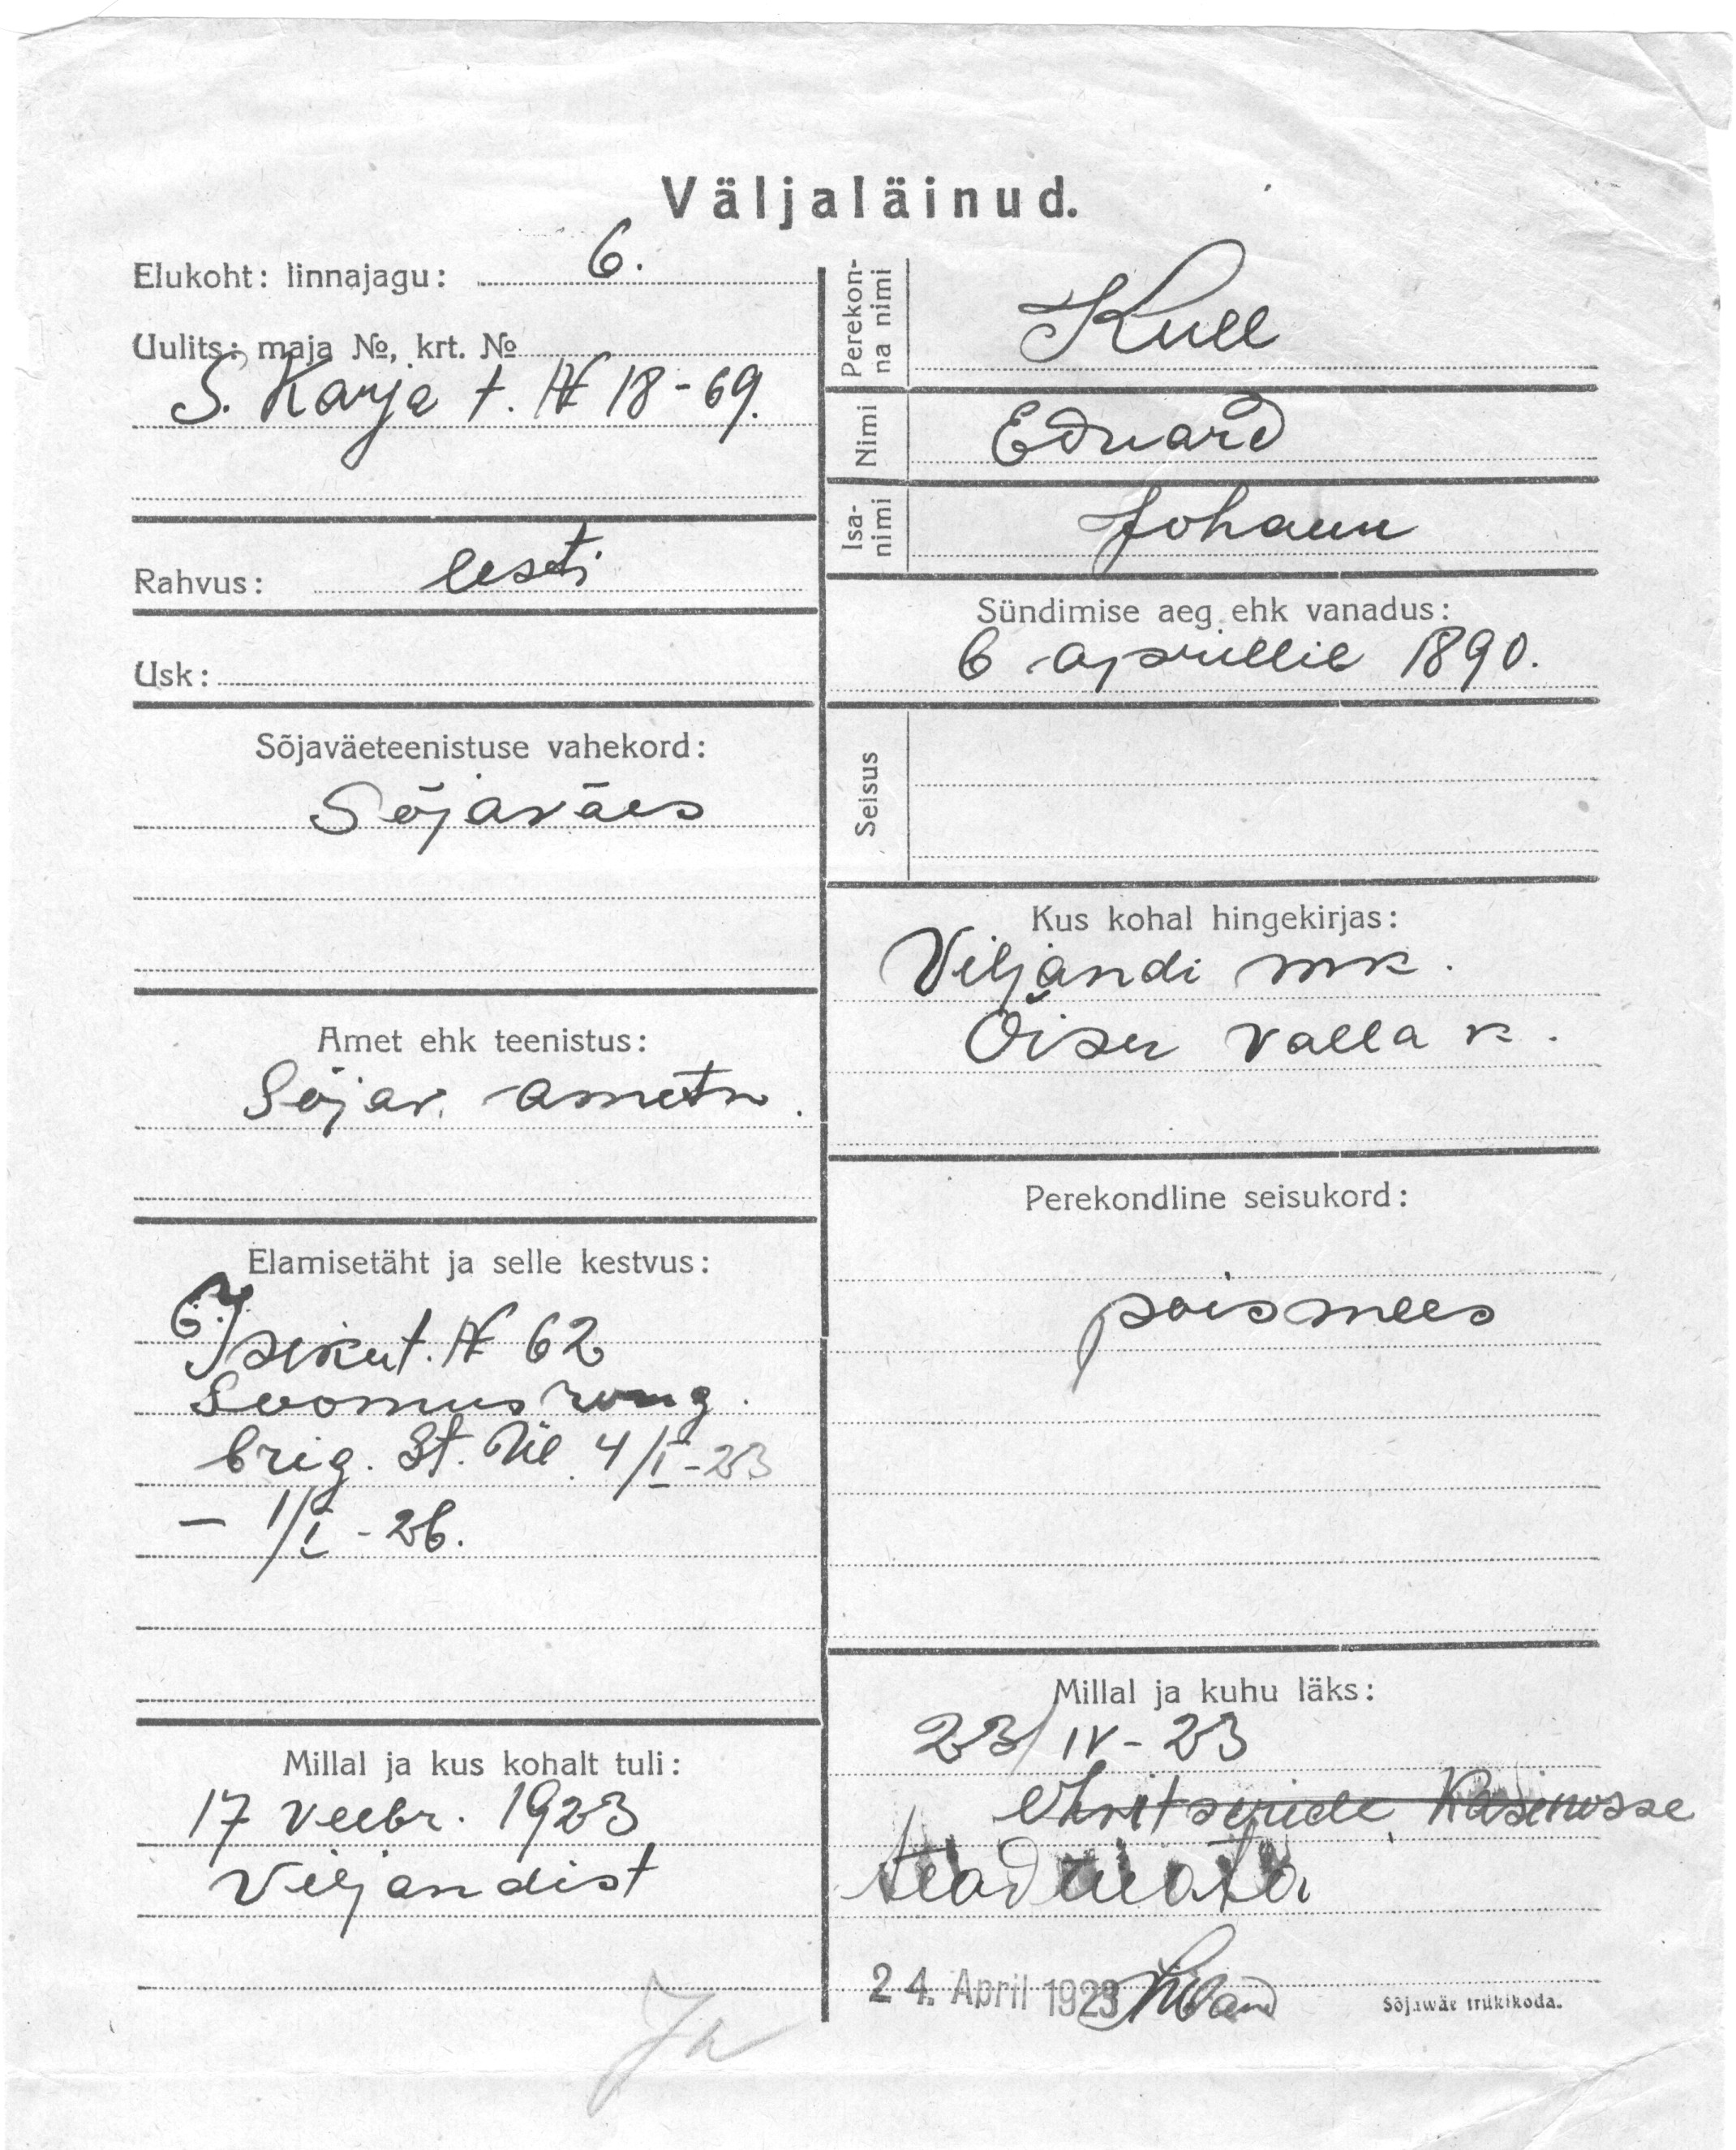 Väljaläinud.
Elukoht: linnajagu: 6.
Uulits: maja №, krt. №
S. Karja t. № 18-69.
Rahvus: eesti
Usk:
Sõjaväeteenistuse vahekord:
Sõjaväes
Amet ehk teenistus:
Sõjav. ametn.
Elamisetäht ja selle kestvus:
Isikut. № 62
Soomusrong.
brig. St. Ül. 4/I-23
- 1/I - 26.
Millal ja kus kohalt tuli:
17 veebr. 1923
Viljandist
Perekon-
na nimi
Kull
Nimi
Eduard
Isa-
nimi
Johann
Sündimise aeg ehk vanadus:
6 aprillil 1890.
Seisus
Kus kohal hingekirjas:
Viljandi mk.
Õisu valla k.
Perekondline seisukord:
poismees
Millal ja kuhu läks:
23/IV-23
Ohvitseride Kasinosse
teadmata
24. April 1923
Sõjawäe trükikoda.